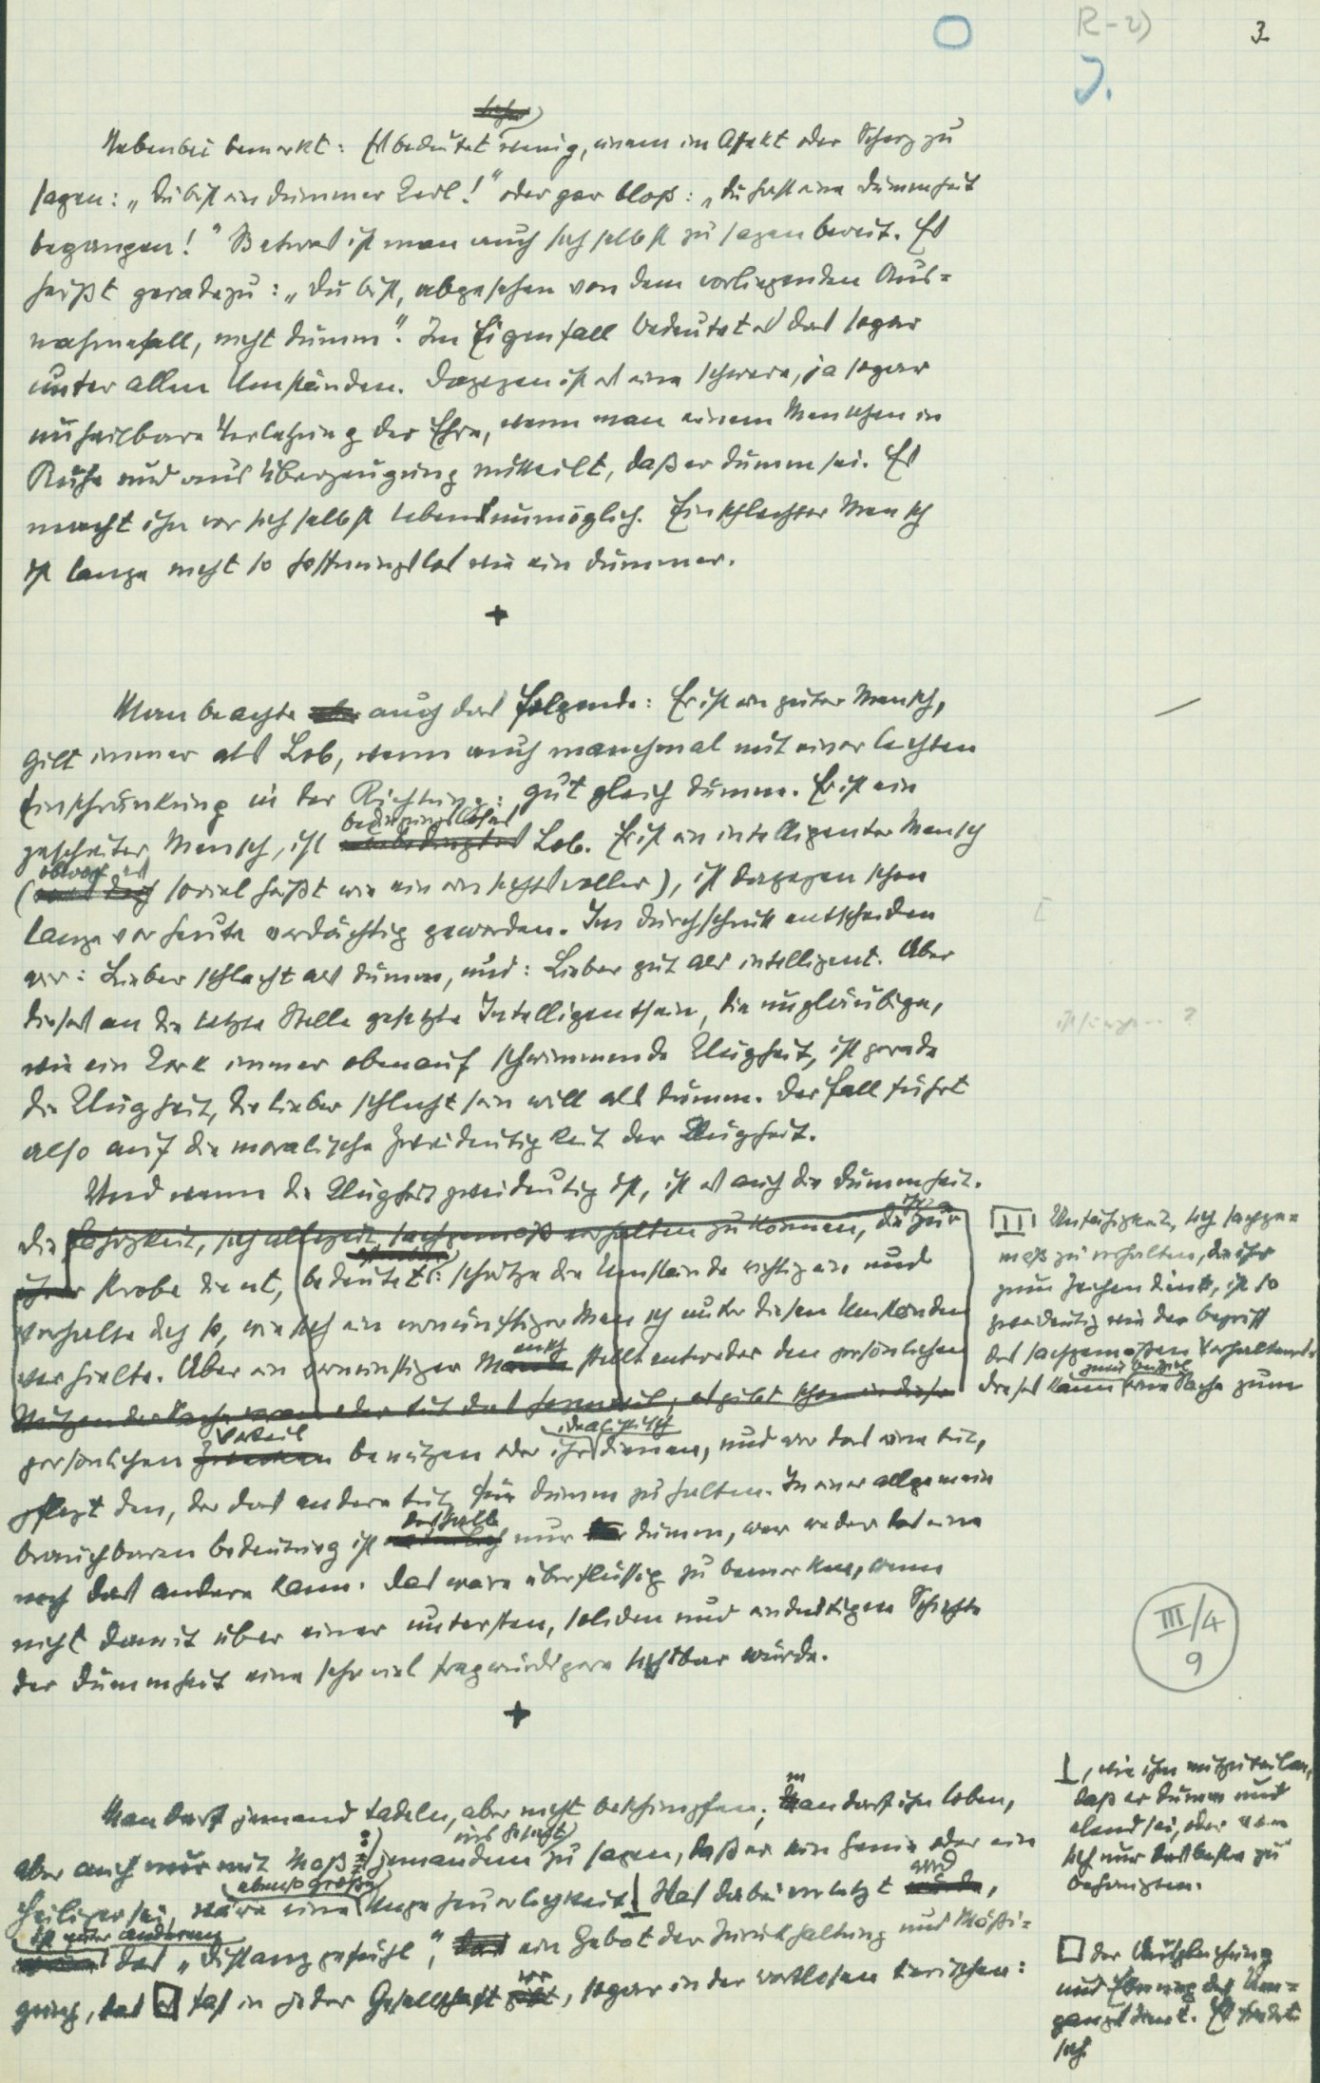 R-2)
3
J.
Nebenbei bemerkt: Es bedeutet wenig, einem im Affekt oder Scherz zu
sagen: „Du bist ein dummer Kerl!" oder gar bloß: „Du hast eine Dummheit
begangen!" So etwas ist man auch sich selbst zu sagen bereit. Es
heißt geradezu: „Du bist, abgesehen von dem vorliegenden Aus=
nahmefall, nicht dumm". Im Eigenfall bedeutet es das sogar
unter allen Umständen. Dagegen ist es eine schwere, ja sogar
unheilbare Verletzung der Ehre, wenn man einem Menschen in
Ruhe und aus Überzeugung mitteilt, daß er dumm sei. Es
macht ihn vor sich selbst lebensunmöglich. Ein schlechter Mensch
ist lange nicht so hoffnungslos wie ein dummer.
+
Man beachte auch das folgende: Er ist ein guter Mensch,
gilt immer als Lob, wenn auch manchmal mit einer leichten
Einschränkung in der Richtung: gut gleich dumm. Er ist ein
bedingungsloses
gescheiter Mensch, ist Lob. Er ist ein intelligenter Mensch
obwohl es
( soviel heißt wie ein einsichtsvoller), ist dagegen schon
lange vor heute verdächtig geworden. Im Durchschnitt entscheiden
wir: Lieber schlecht als dumm, und: Lieber gut als intelligent. Aber
dieses an die letzte Stelle gesetzte Intelligentsein, die ungläubige,
wie ein Kork immer obenauf schwimmende Klugheit, ist gerade
die Klugheit, die lieber schlecht sein will als dumm. Der Fall führt
also auf die moralische Zweideutigkeit der Klugheit.
Und wenn die Klugheit zweideutig ist, ist es auch die Dummheit.
Die Fähigkeit, sich allezeit sachgemäß verhalten zu können, die zur
ihrer Probe dient, bedeutet: schätze die Umstände richtig ein und
verhalte dich so, wie sich ein vernünftiger Mensch unter diesen Umständen
verhielte. Aber ein vernünftiger Mensch stellt entweder den persönlichen
Nutzen der Sache voran oder tut das Gegenteil, es gibt schon in dieser
III Unfähigkeit, sich sachge=
mäß zu verhalten, die ihr
zum Zeichen dient, ist so
zweideutig wie der Begriff
des sachgemäßen Verhaltens.
zum Beispiel
Dieses kann eine Sache zum
Vorteil
idealistisch
persönlichen benützen oder ihr dienen, und wer das eine tut,
pflegt den, der das andere tut, für dumm zu halten. In einer allgemein
deshalb
brauchbaren Bedeutung ist nur dumm, wer weder das eine
noch das andere kann. Das wäre überflüssig zu bemerken, wenn
nicht damit über einer untersten, soliden und eindeutigen Schichte
der Dummheit eine sehr viel fragwürdigere sichtbar würde.
III/4
9
+
Man darf jemand tadeln, aber nicht beschimpfen; man darf ihn loben,
ins Gesicht
aber auch nur mit Maß: jemandem zu sagen, daß er ein Genie oder ein
ebenso große
Heiliger sei, wäre eine Ungeheuerlichkeit⊥ Was dabei verletzt wird,
ist unter anderem
das „Distanzgefühl", ein Gebot der Zurückhaltung und Mäßi=
gung, das □ fast in jeder Gesellschaft vor, sogar in der wortlosen tierischen:
⊥, wie ihm mitzuteilen,
daß er dumm und
elend sei, oder von
sich nur das beste zu
behaupten.
□ der Ausgleichung
und Ebnung des Um=
gangs dient. Es findet
sich